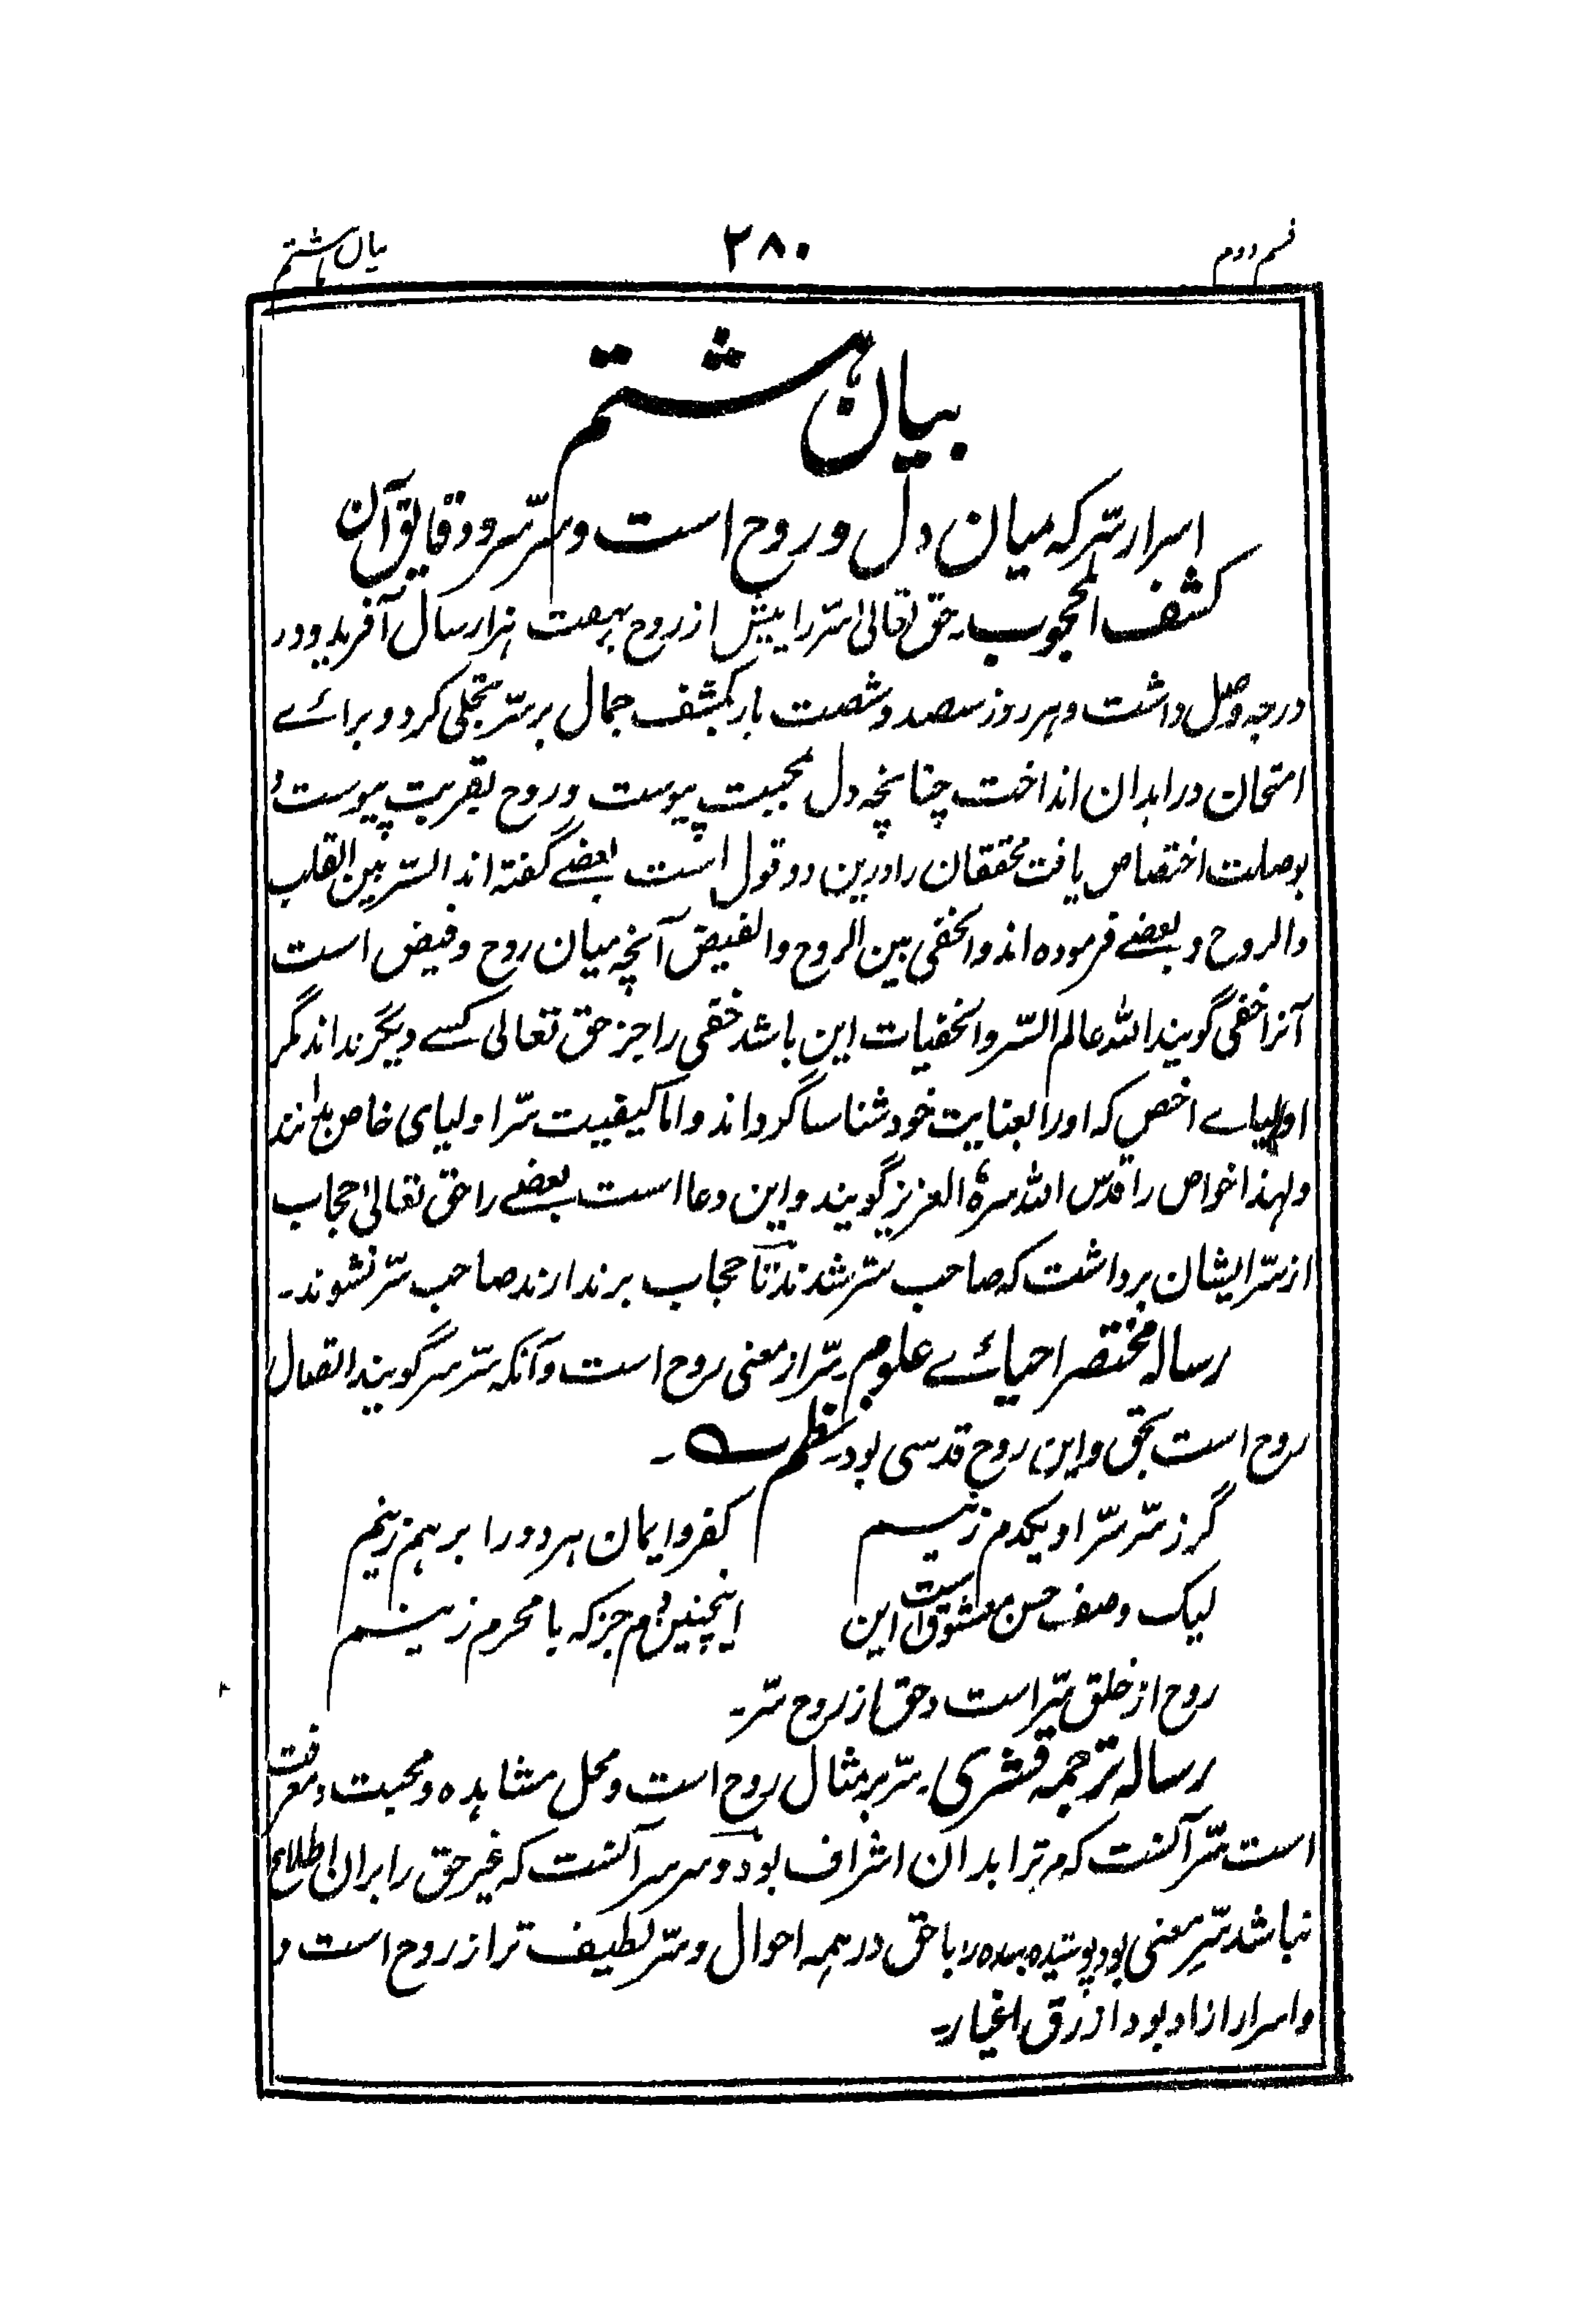 قسم دوم
۲۸۰
بیان ہشتم
بیان ہشتم
اسرار سّر کہ میان دل و روح است و سّر سر و دقایق آن
کشف المحجوب۔ حق تعالیٰ سّر را پیش از روح بہفت ہزار سال آفرید و در
درجہ وصل داشت و ہر روز سصد و شصت بار بکشف جمال بر سّر تجلی کرد و برائے
امتحان در ابدان انداخت چنانچہ دل بمحبت پیوست و روح بقربت پیوست و
بوصلت اختصاص یافت محققان را درین دو قول است بعضے گفتہ اند السّر بین القلب
والروح و بعضے فرمودہ اند والخفی بین الروح والفیض آنچہ میان روح و فیض است
آنرا خفی گویند اللہ عالم السّر والخفیات این باشد خفی را جز حق تعالی کسے دیگر نداند مگر
اولیاے اخص کہ اورا بعنایت خود شناسا گرداند و اما کیفیت سّر اولیای خاص بدانند
ولہذا خواص را قدّس اللہ سرہٗ العزیز گویند و این دعا است بعضے را حق تعالیٰ حجاب
از سّر ایشان برداشت کہ صاحب سّر شدند تا حجاب برندارند صاحب سّر نشوند۔
رسالہ مختصر احیائے علوم۔ سّر از معنی روح است و آنکہ سّر سر گویند اتصال
روح است بحق و این روح قدسی بود۔ نظم۔
گر ز سّر سّر او یکدم زنیم	کفر و ایمان ہر دو را برہم زنیم
لیک وصف حسن معشوق است این	اینچنین دم جز کہ با محرم زنیم
روح از خلق سّر است و حق از روح سّر۔
رسالہ ترجمہ قشری۔ سّر بر مثال روح است و محل مشاہدہ و محبت و معرفت
است سّر آنست کہ مر ترا بدان اشراف بود و سر سر آنست کہ غیر حق را بران اطلاع
نباشد سّر معنی بود پوشیدہ بندہ را با حق در ہمہ احوال و سّر لطیف تر از روح است و
و اسرار ازاد بود از رق اغیار۔